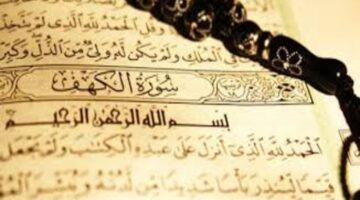 وَقُلِ الْحَمْدُ لِلَّهِ الَّذِي لَمْ يَتَّخِذْ
فِي الْمُلْكِ وَلَمْ يَكُن لَّهُ وَلِيٌّ مِّنَ الذُّلِّ وَكَبِّرْ
سُورَةُ الْكَهْفِ
بِسْمِ اللَّهِ الرَّحْمَٰنِ الرَّحِيمِ
الْحَمْدُ لِلَّهِ الَّذِي أَنزَلَ عَلَىٰ عَبْدِهِ الْكِتَابَ وَلَمْ يَجْعَل
قَيِّمًا لِّيُنذِرَ بَأْسًا شَدِيدًا مِّن لَّدُنْهُ وَيُبَشِّرَ الْمُؤْ